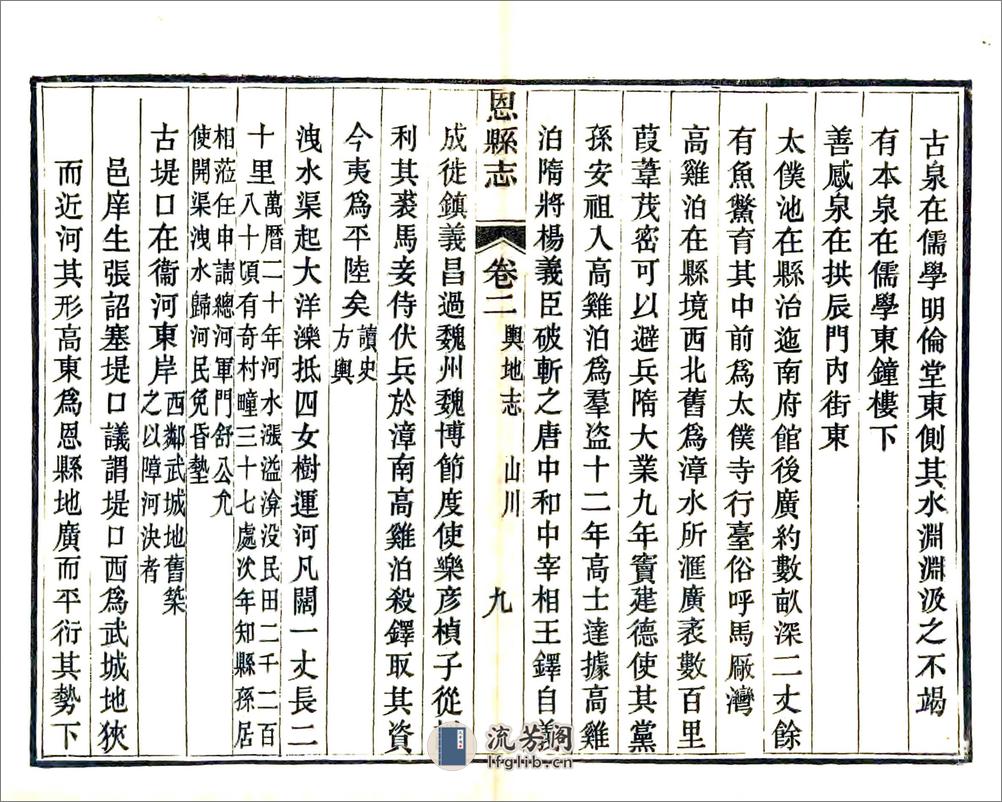 古泉在儒學明倫堂東側其水淵淵汲之不竭
有本泉在儒學東鐘樓下
善感泉在拱辰門內街東
太僕池在縣治迤南府館後廣約數畝深二丈餘
有魚鱉育其中前爲太僕寺行臺俗呼馬厰灣
高雞泊在縣境西北舊爲漳水所滙廣袤數百里
葭葦茂密可以避兵隋大業九年竇建德使其黨
孫安祖入高雞泊爲羣盜十二年高士達據高雞
泊隋將楊義臣破斬之唐中和中宰相王鐸自義
恩縣志
卷二
輿地志
山川
九
成徙鎮義昌過魏州魏博節度使樂彥楨子從
利其裘馬妾侍伏兵於漳南高雞泊殺鐸取其資
今夷爲平陸矣
讀史
方輿
洩水渠起大洋濼抵四女樹運河凡闊一丈長二
十里
萬曆二十年河水漲溢渰没民田二千二百
八十頃有奇村疃三十七處次年知縣孫居
相蒞任申請總河軍門舒公允
使開渠洩水歸河民免昏墊
古堤口在衞河東岸
西鄰武城地舊築
之以障河決者
邑庠生張詔塞堤口議謂堤口西爲武城地狹
而近河其形高東爲恩縣地廣而平衍其勢下
流芳閣
lfglib.cn